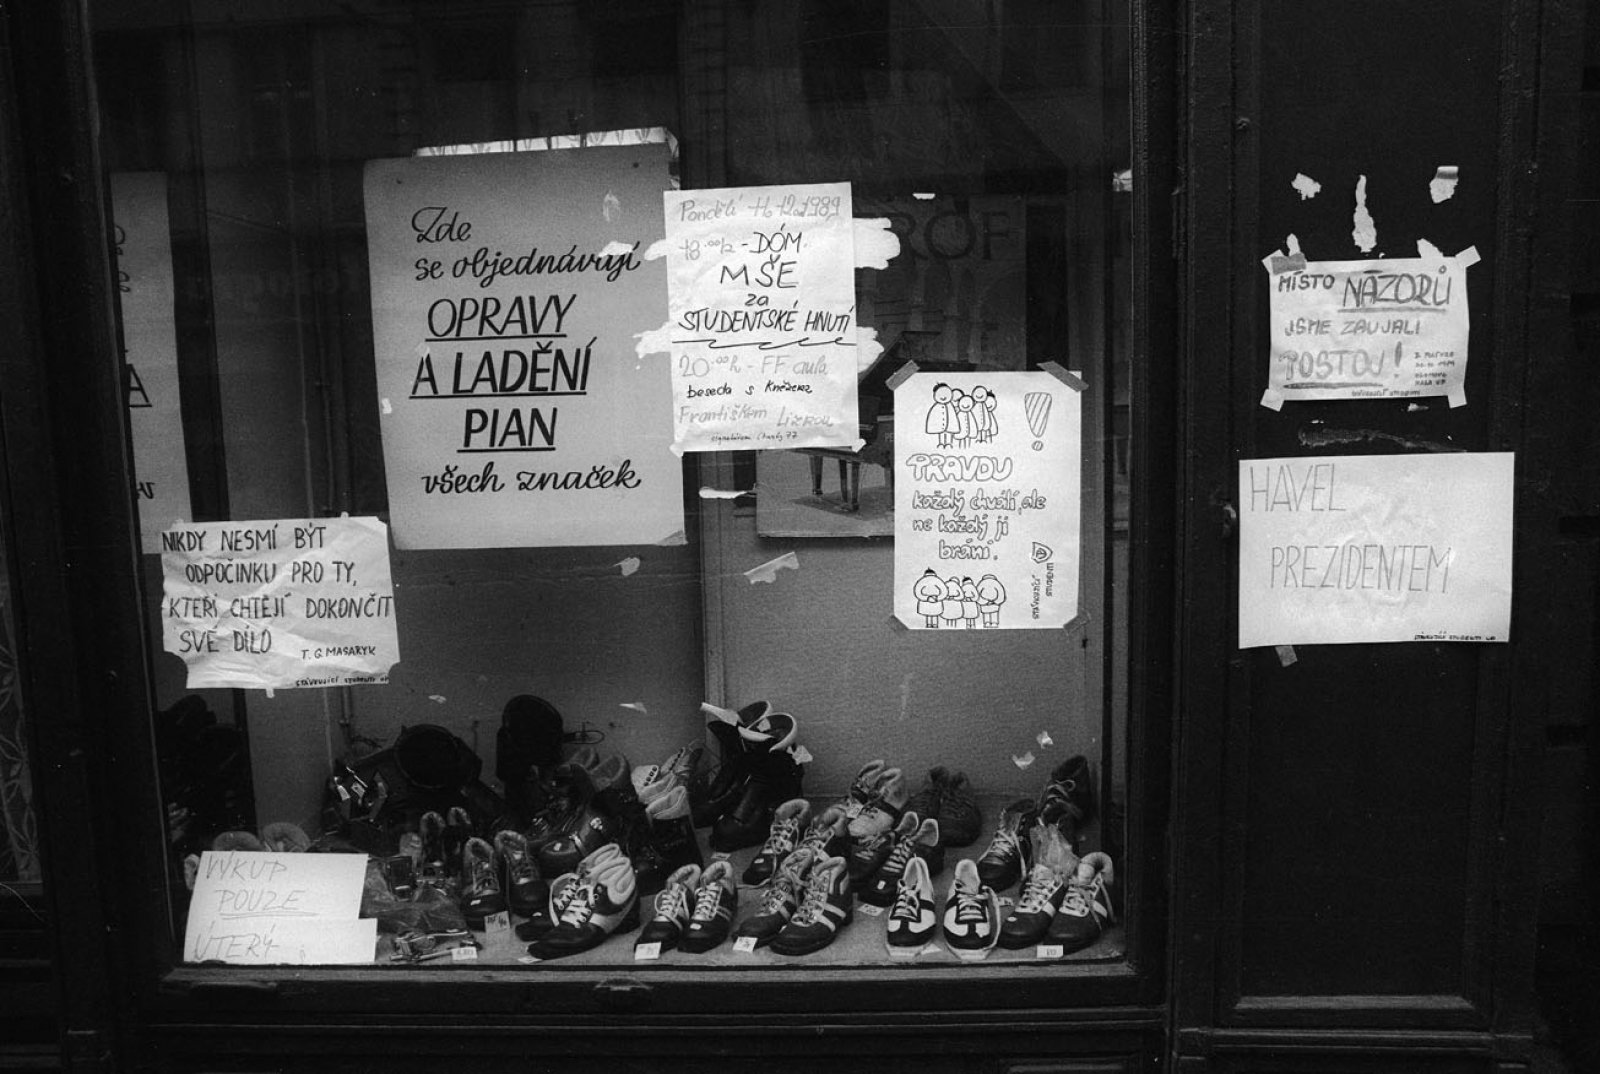 Zde
se objednávají
OPRAVY
A LADĚNÍ
PIAN
všech značek
Pondělí 11. 12. 1989
18.00h - DÓM
MŠE
za
STUDENTSKÉ HNUTÍ
20.00h - FF aula
beseda s Knězem
Františkem Lízrou
signatářem Charty 77
PRAVDU
každý chválí, ale
ne každý ji
brání.
STÁVKUJÍCÍ
STUDENTI
MÍSTO NÁZORŮ
JSME ZAUJALI
POSTOJ!
HAVEL
PREZIDENTEM
STÁVKUJÍCÍ STUDENTI UP
NIKDY NESMÍ BÝT
ODPOČINKU PRO TY,
KTEŘÍ CHTĚJÍ DOKONČIT
SVÉ DÍLO
T. G. MASARYK
STÁVKUJÍCÍ STUDENTI UP
VÝKUP
POUZE
ÚTERÝ